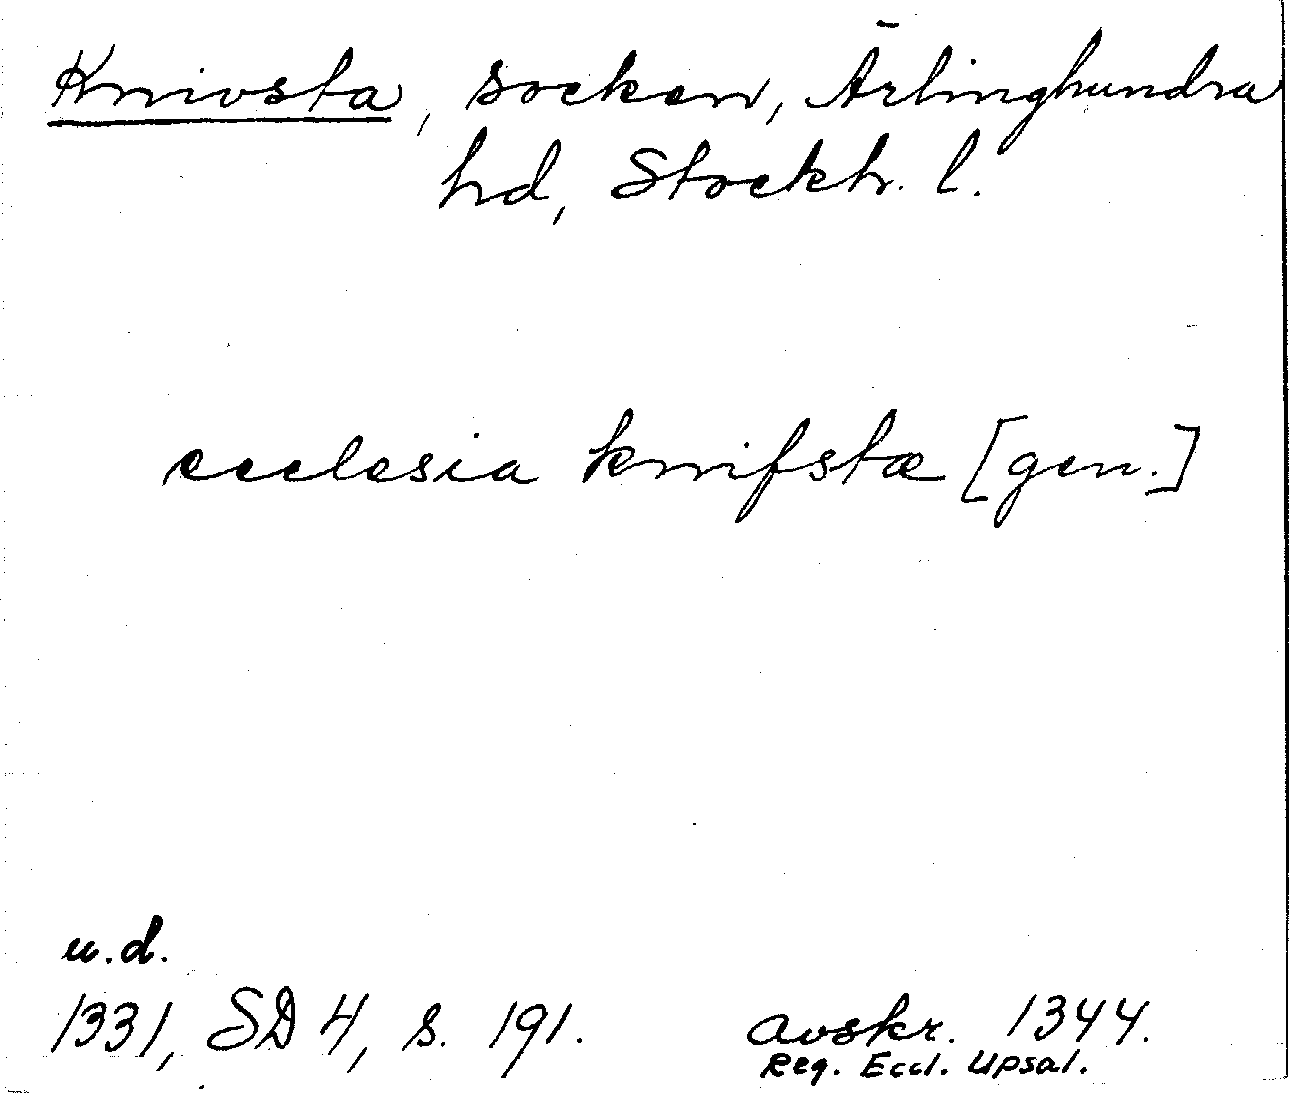 Knivsta, socken, Ärlinghundra
hd, Stockh. l.
ecclesia knifstæ [gen.]
u.d.
1331, SD 4, s. 191. avskr. 1344.
Reg. Eccl. Upsal.